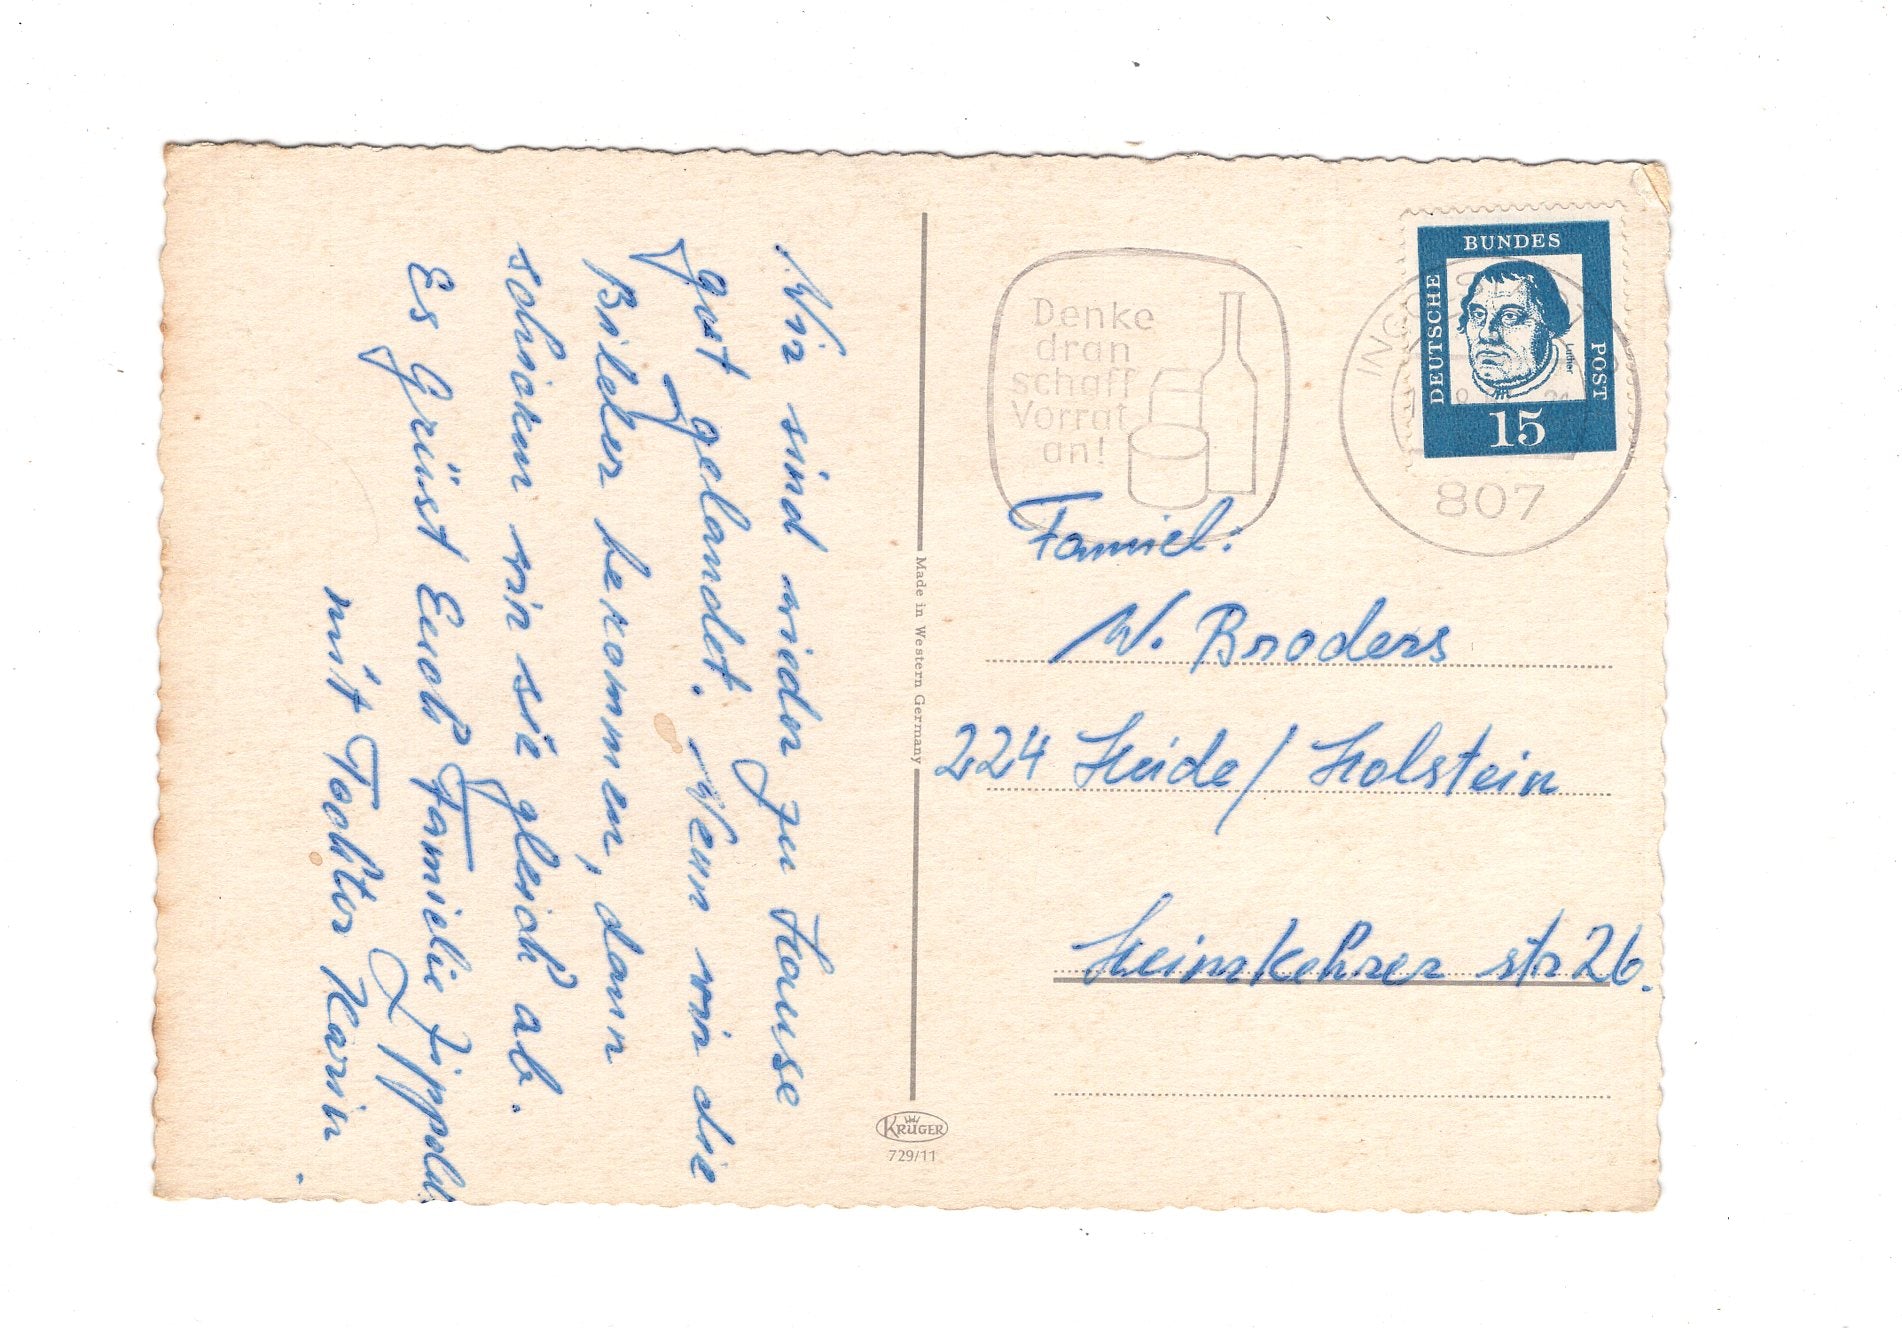 Wir sind wieder zu Hause
gut gelandet. Wenn wir die
Bilder bekommen, dann
schicken wir sie gleich ab.
Es Grüst Euch Familie Zippold
mit Tochter Karin
Made in Western Germany
KRÜGER
729/11
Denke
dran
schaff
Vorrat
an!
DEUTSCHE
BUNDES
POST
Luther
15
807
Famiel:
W. Broders
224 Heide/Holstein
Heimkehrer str 26.